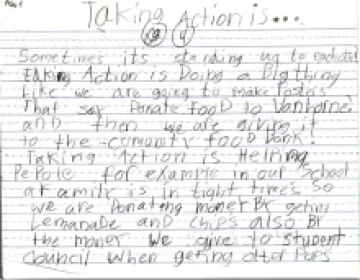 Taking Action is...
Sometimes its standing up to
taking Action is Doing a Big thing
Like we are going to make Posters
That say Donate food to
and then we are giving it
to the comunity food bank!
Taking Action is Helping
PePole for example in our School
a family is in tight times so
we are Donating money By geting
Lemanade and chips also By
the money we give to student
Council when geting Pops